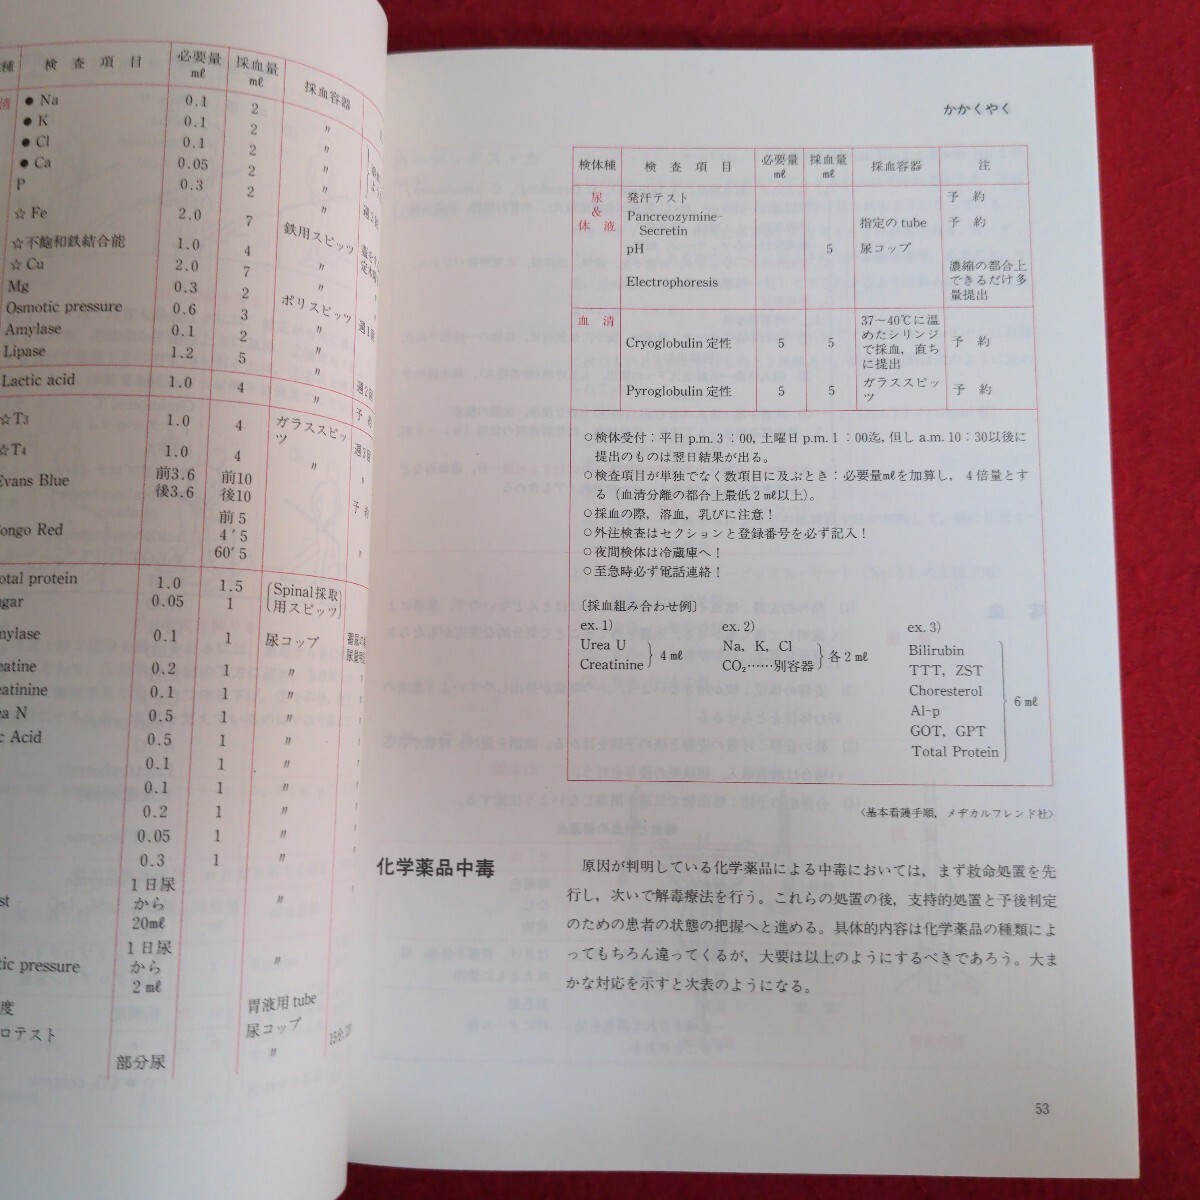 種 検査項目 必要量 mℓ 採血量 mℓ 採血容器
清 ● Na 0.1 2
● K 0.1 2 〃
● Cl 0.1 2 〃
● Ca 0.05 2 〃
P 0.3 2 〃
☆ Fe 2.0 7 鉄用スピッツ
☆不飽和鉄結合能 1.0 4 〃
☆ Cu 2.0 7 〃
Mg 0.3 2 ポリスピッツ
Osmotic pressure 0.6 3 〃
Amylase 0.1 2 〃
Lipase 1.2 5 〃
Lactic acid 1.0 4 〃 予
☆T3 1.0 4 ガラススピッツ
☆T4 1.0 4 〃
Evans Blue 前3.6 後3.6 前10 後10 予
ongo Red 前5 4′5 60′5 〃
otal protein 1.0 1.5 (Spinal採取用スピッツ)
gar 0.05 1
mylase 0.1 1 尿コップ
eatine 0.2 1 〃
eatinine 0.1 1 〃
ea N 0.5 1 〃
c Acid 0.5 1 〃
0.1 1 〃
0.1 1 〃
0.2 1 〃
0.05 1 〃
0.3 1 〃
st 1日尿から20mℓ 〃
tic pressure 1日尿から2mℓ 〃
度 胃液用tube
ロテスト 尿コップ
部分尿 〃
かかくやく
検体種 検査項目 必要量 mℓ 採血量 mℓ 採血容器 注
尿&体液 発汗テスト 予約
Pancreozymine-Secretin 指定のtube 予約
pH 5 尿コップ
Electrophoresis 濃縮の都合上できるだけ多量提出
血清 Cryoglobulin 定性 5 5 37〜40℃に温めたシリンジで採血，直ちに提出 予約
Pyroglobulin 定性 5 5 ガラススピッツ 予約
○検体受付：平日 p.m. 3：00, 土曜日 p.m. 1：00迄, 但し a.m. 10：30以後に
提出のものは翌日結果が出る。
○検査項目が単独でなく数項目に及ぶとき：必要量mℓを加算し，4倍量とす
る（血清分離の都合上最低2mℓ以上）。
○採血の際，溶血，乳びに注意！
○外注検査はセクションと登録番号を必ず記入！
○夜間検体は冷蔵庫へ！
○至急時必ず電話連絡！
〔採血組み合わせ例〕
ex. 1)
Urea U
Creatinine
4 mℓ
ex. 2)
Na, K, Cl
CO₂……別容器
各2 mℓ
ex. 3)
Bilirubin
TTT, ZST
Choresterol
Al-p
GOT, GPT
Total Protein
6 mℓ
〈基本看護手順，メヂカルフレンド社〉
化学薬品中毒
原因が判明している化学薬品による中毒においては，まず救命処置を先
行し，次いで解毒療法を行う。これらの処置の後，支持的処置と予後判定
のための患者の状態の把握へと進める。具体的内容は化学薬品の種類によ
ってもちろん違ってくるが，大要は以上のようにするべきであろう。大ま
かな対応を示すと次表のようになる。
53